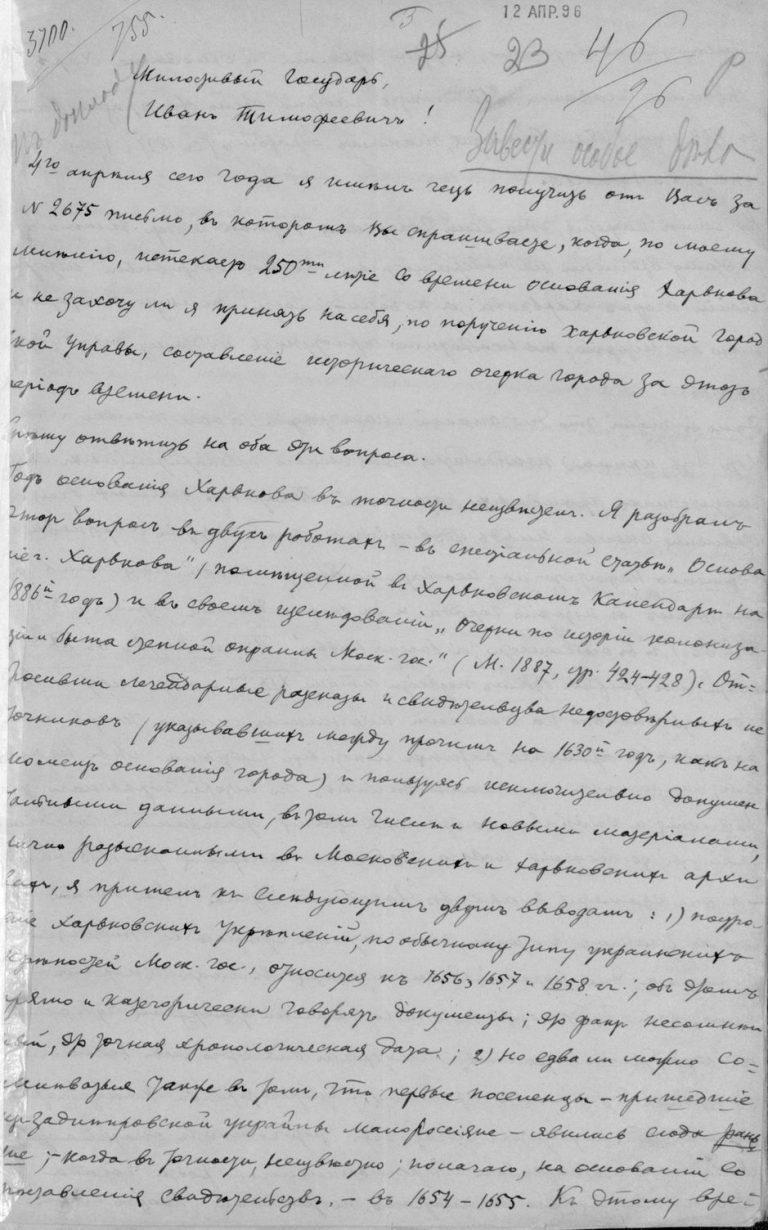 12 АПР. 96
3700. 755. 25 23 46
96 Р
Милостивый Государь,
Иванъ Тимофеевичъ!
Въ докладъ
Завести особое дѣло
4го апрѣля сего года я имѣлъ честь получить отъ Васъ за
№ 2675 письмо, въ которомъ Вы спрашиваете, когда, по моему
мнѣнію, истекаетъ 250ти лѣтіе со времени основанія Харькова
и не захочу ли я принять на себя, по порученію Харьковской город
ской Управы, составленіе историческаго очерка города за этотъ
періодъ времени.
Спѣшу отвѣтить на оба эти вопроса.
Годъ основанія Харькова въ точности неизвѣстенъ. Я разобралъ
этотъ вопросъ въ двухъ работахъ – въ спеціальной статьѣ „Основа
ніе г. Харькова" (помѣщенной въ Харьковскомъ Календарѣ на
1886й годъ) и въ своемъ изслѣдованіи „Очерки по исторіи колониза-
ціи и быта степной окраины Моск. гос." (М. 1887, стр. 424–428). От=
бросивши легендарные разсказы и свидѣтельства недостовѣрныхъ ис
точниковъ (указывавшихъ между прочимъ на 1630й годъ, какъ на
моментъ основанія города) и пользуясь исключительно докумен
тальными данными, въ томъ числѣ и новыми матеріалами,
лично разысканными въ Московскихъ и Харьковскихъ архи
вахъ, я пришелъ къ слѣдующимъ двумъ выводамъ: 1) постро-
еніе Харьковскихъ укрѣпленій, по обычному типу украинскихъ
крѣпостей Моск. гос., относится къ 1656, 1657 и 1658 гг.; объ этомъ
прямо и категорически говорятъ документы; это фактъ несомнѣн
ный, это точная хронологическая дата; 2) но едва ли можно со=
мнѣваться также въ томъ, что первые поселенцы – пришедшіе
изъ заднѣпровской украйны малороссіяне – явились сюда рань
ше; – когда въ точности, неизвѣстно; полагаю, на основаніи со
поставленія свидѣтельствъ, – въ 1654–1655. Къ этому вре-